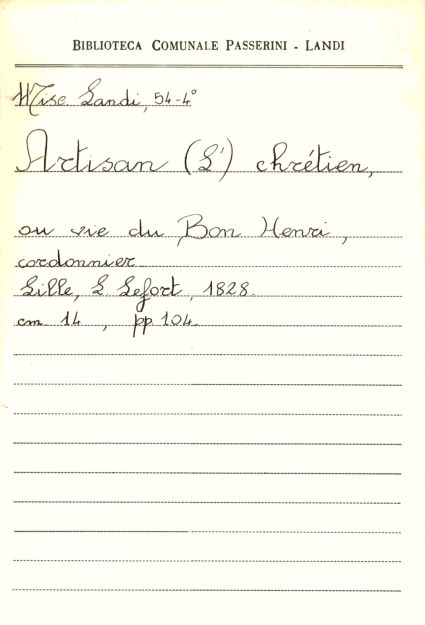 BIBLIOTECA COMUNALE PASSERINI - LANDI
Misc. Landi, 54-4°
Artisan (L') chrétien,
ou vie du Bon Henri,
cordonnier
Lille, L. Lefort, 1828.
cm. 14, pp. 104.